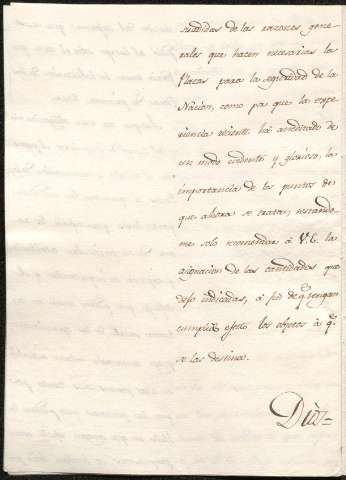 suadidas de las razones gene-
rales que hacen necesarias las
Plazas para la seguridad de la
Nacion, como pa que la expe-
riencia reciente ha acreditado de
un modo evidente y glorioso, la
importancia de los puntos de
que ahora se trata; restando-
me solo recomendar á V.E. la
asignacion de las cantidades que
dejo indicadas, á fin de q.e tengan
cumplido efecto los objetos á q.e
se las destina.
Dios=